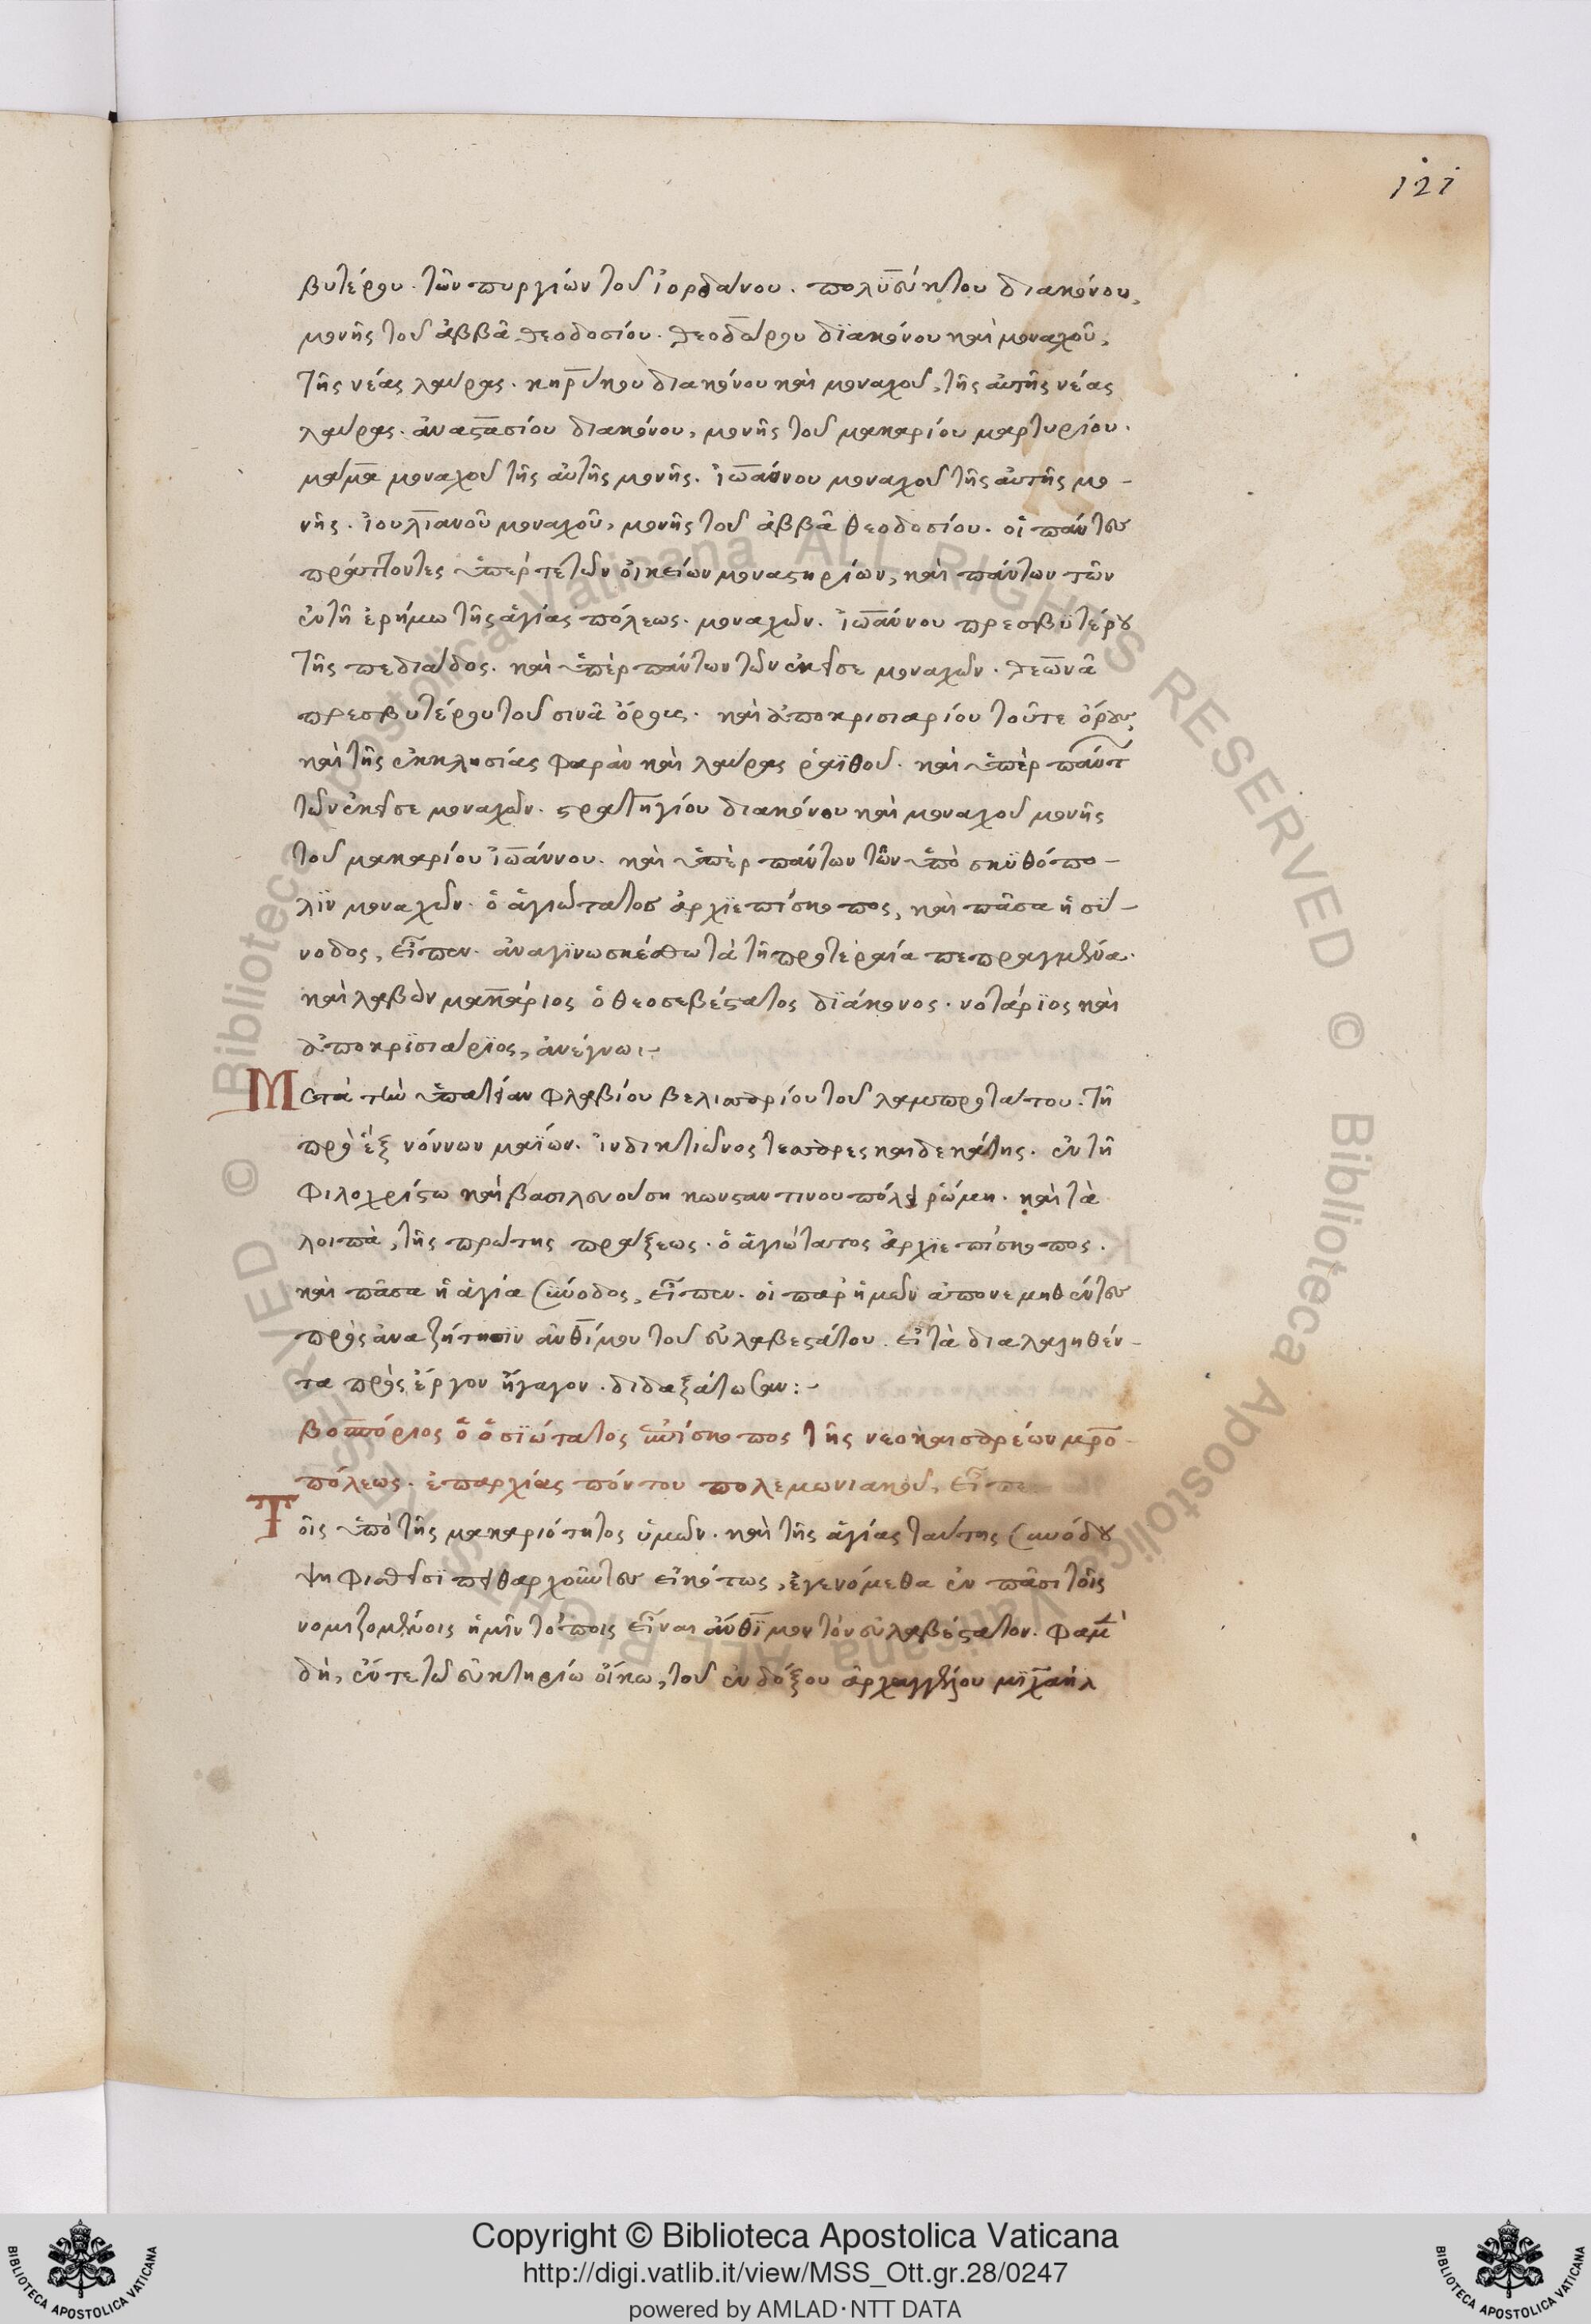 121
βυτέρου τῶν πυργίων τοῦ ἰορδάνου. πολυεύκτου διακόνου,
μονῆς τοῦ ἀββᾶ θεοδοσίου. θεοδώρου διακόνου καὶ μοναχοῦ,
τῆς νέας λαύρας. κηρύκου διακόνου καὶ μοναχοῦ, τῆς αὐτῆς νέας
λαύρας. ἀναστασίου διακόνου, μονῆς τοῦ μακαρίου μαρτυρίου.
μάμα μοναχοῦ τῆς αὐτῆς μονῆς. ἰωάννου μοναχοῦ τῆς αὐτῆς μο-
νῆς. ἰουλιανοῦ μοναχοῦ, μονῆς τοῦ ἀββᾶ θεοδοσίου. οἱ πάντες
πράττοντες ὑπέρ τε τῶν οἰκείων μοναστηρίων, καὶ πάντων τῶν
ἐν τῇ ἐρήμω τῆς ἁγίας πόλεως. μοναχῶν. ἰωάννου πρεσβυτέρου
τῆς πεδιάδος. καὶ ὑπὲρ πάντων τῶν ἐκεῖσε μοναχῶν. θεωνᾶ
πρεσβυτέρου τοῦ σινᾶ ὄρους. καὶ ἀποκρισιαρίου τοῦτε ὄρους
καὶ τῆς ἐκκλησίας φαρὰν καὶ λαύρας ῥαϊθοῦ. καὶ ὑπὲρ πάντ
τῶν ἐκεῖσε μοναχῶν. στρατηγίου διακόνου καὶ μοναχοῦ μονῆς
τοῦ μακαρίου ἰωάννου. καὶ ὑπὲρ πάντων τῶν ὑπὸ σκυθόπο-
λιν μοναχῶν. ὁ ἁγιώτατος ἀρχιεπίσκοπος, καὶ πᾶσα ἡ σύ-
νοδος, εἶπεν. ἀναγινωσκέσθω τὰ τῇ προτεραία πεπραγμένα.
καὶ λαβὼν μακάριος ὁ θεοσεβέστατος διάκονος. νοτάριος καὶ
ἀποκρισιάριος, ἀνέγνω:-
Μετὰ τὴν ὑπατείαν φλαβίου βελισαρίου τοῦ λαμπροτάτου. τῇ
πρὸ ἓξ νόννων μαΐων. ἰνδικτιῶνος τεσσαρεσκαιδεκάτης. ἐν τῇ
φιλοχρίστω καὶ βασιλευούση κωνσταντινουπόλει ῥώμη. καὶ τὰ
λοιπὰ, τῆς πρώτης πράξεως. ὁ ἁγιώτατος ἀρχιεπίσκοπος.
καὶ πᾶσα ἡ ἁγία σύνοδος, εἶπεν. οἱ παρ ἡμῶν ἀπονεμηθέντες
πρὸς ἀναζήτησιν ἀνθίμου τοῦ εὐλαβεστάτου. εἰ τὰ διαλαληθέν-
τα πρὸς ἔργον ἤγαγον. διδαξάτωσαν:-
βοσπόριος ὁ ὁσιώτατος ἐπίσκοπος τῆς νεοκαισαρέων μρο-
πόλεως. ἐπαρχίας πόντου πολεμωνιακοῦ, εἶπε
Τοῖς ὑπὸ τῆς μακαριότητος ὑμῶν. καὶ τῆς ἁγίας ταύτης συνόδου
ψηφισθεῖσι πειθαρχοῦντες εἰκότως, ἐγενόμεθα ἐν πᾶσι τοῖς
νομιζομένοις ἡμῖν τόποις εἶναι ἄνθιμον τὸν εὐλαβέστατον. φαμὲ
δὴ, ἔν τε τῶ εὐκτηρίω οἴκω, τοῦ ἐνδόξου ἀρχαγγέλου μιχαὴλ
Copyright © Biblioteca Apostolica Vaticana
http://digi.vatlib.it/view/MSS_Ott.gr.28/0247
powered by AMLAD·NTT DATA